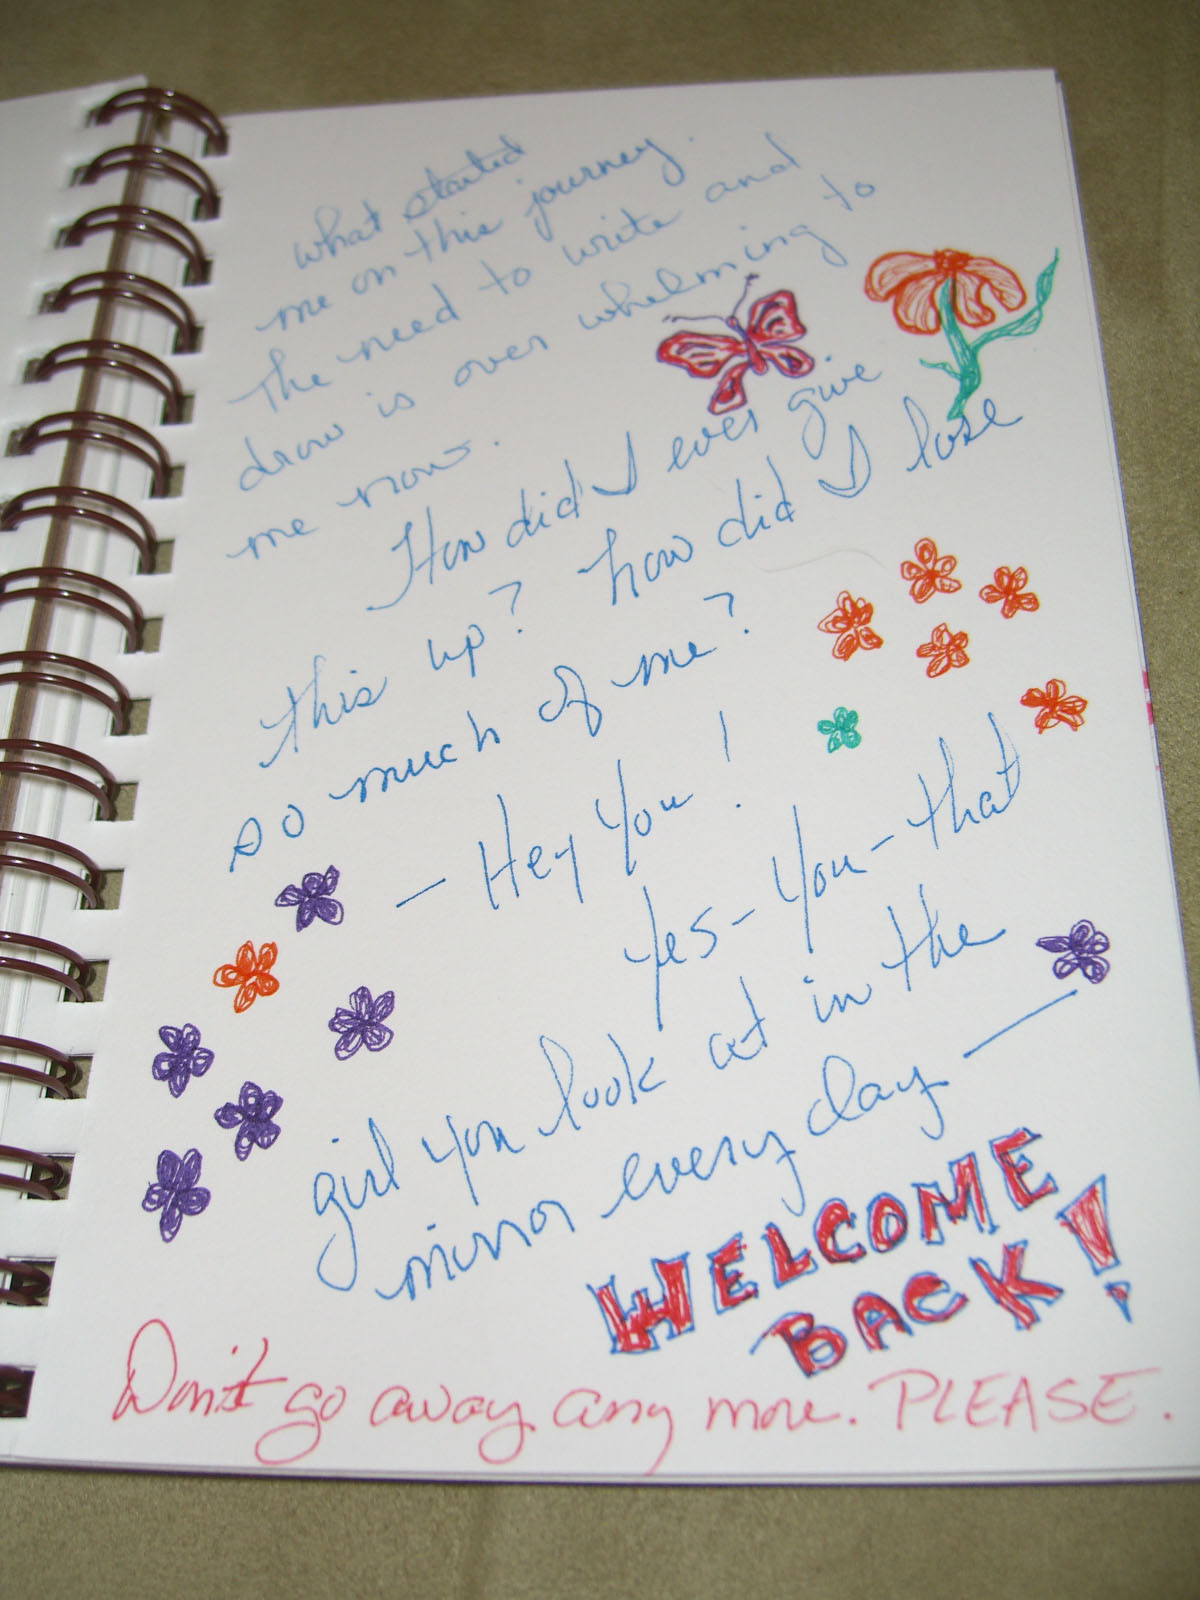 what started
me on this journey.
The need to write and
draw is over whelming to
me now.
How did I ever give
this up? how did I lose
so much of me?
— Hey You!
Yes - You - that
girl you look at in the
mirror every day —
WELCOME
BACK!
Don't go away any more. PLEASE.